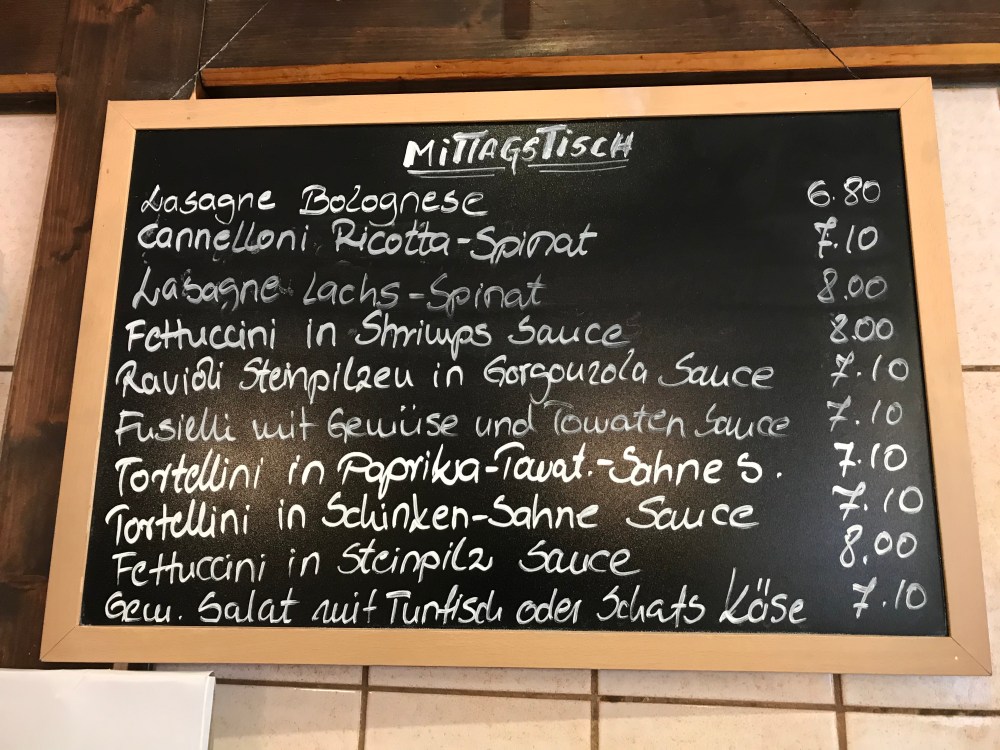 MiTTAGSTiSCH
Lasagne Bolognese 6.80
Cannelloni Ricotta-Spinat 7.10
Lasagne Lachs-Spinat 8.00
Fettuccini in Shrimps Sauce 8.00
Ravioli Steinpilzen in Gorgonzola Sauce 7.10
Fusielli mit Gemüise und Tomaten Sauce 7.10
Tortellini in Paprika-Tomat.-Sahne S. 7.10
Tortellini in Schinken-Sahne Sauce 7.10
Fettuccini in Steinpilz Sauce 8.00
Gem. Salat mit Tunfisch oder Schafs Käse 7.10